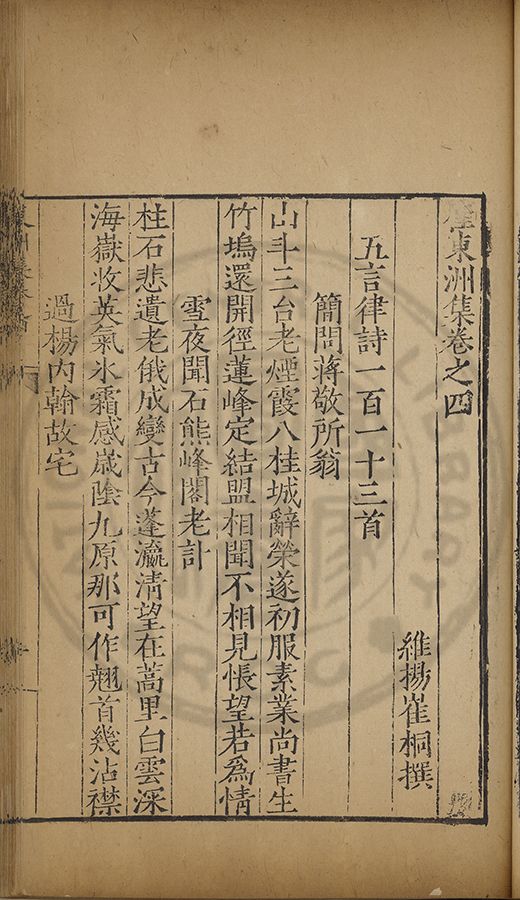 崔東洲集卷之四
維揚崔桐撰
五言律詩一百一十三首
簡問蔣敬所翁
山斗三台老煙霞八桂城辭榮遂初服素業尚書生
竹塢還開徑蓮峰定結盟相聞不相見悵望若爲情
雪夜聞石熊峰閣老訃
柱石悲遺老俄成變古今蓬瀛清望在蒿里白雲深
海嶽收英氣氷霜感歲陰九原那可作翹首幾沾襟
過楊内翰故宅